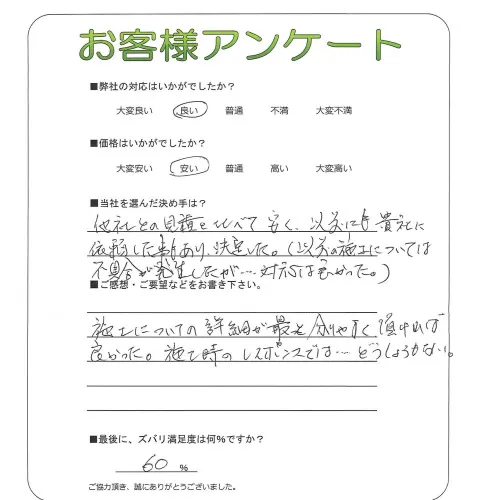 お客様アンケート
■弊社の対応はいかがでしたか？
大変良い 良い 普通 不満 大変不満
■価格はいかがでしたか？
大変安い 安い 普通 高い 大変高い
■当社を選んだ決め手は？
他社との見積と比べて安く、以前にも貴社に
依頼した事もあり、決定した。(以前の施工については
不具合が発生したが…対応は良かった。)
■ご感想・ご要望などをお書き下さい。
施工についての詳細が最も分りやすく頂ければ
良かった。施工時のレスポンスでは…どうしようもない。
■最後に、ズバリ満足度は何%ですか？
60 %
ご協力頂き、誠にありがとうございました。